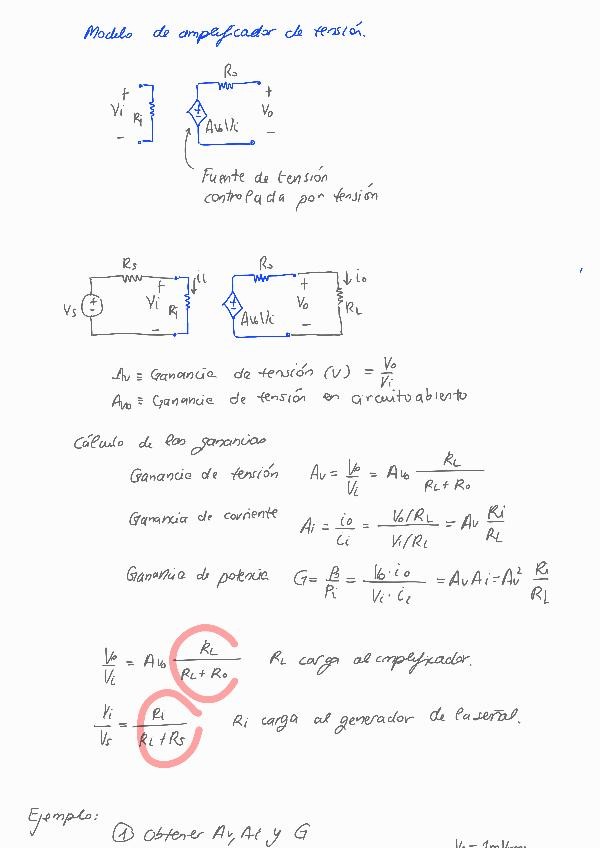 Modelo de amplificador de tensión.
+ Vi - Ri Ro AvoVi + Vo -
Fuente de tensión
controlada por tensión
Rs ii Ro io
Vs + Vi - Ri AvoVi + Vo - RL
Av ≡ Ganancia de tensión (V) = Vo/Vi
Avo ≡ Ganancia de tensión en circuito abierto
Cálculo de las ganancias
Ganancia de tensión Av = Vo/Vi = Avo RL/(RL + Ro)
Ganancia de corriente Ai = io/ii = (Vo/RL)/(Vi/RL) = Av Ri/RL
Ganancia de potencia G = Po/Pi = (Vo · io)/(Vi · ii) = Av Ai = Av² Ri/RL
Vo/Vi = Avo RL/(RL + Ro) RL carga al amplificador.
Vi/Vs = Ri/(RL + Rs) Ri carga al generador de la señal.
Ejemplo:
① Obtener Av, Ai y G